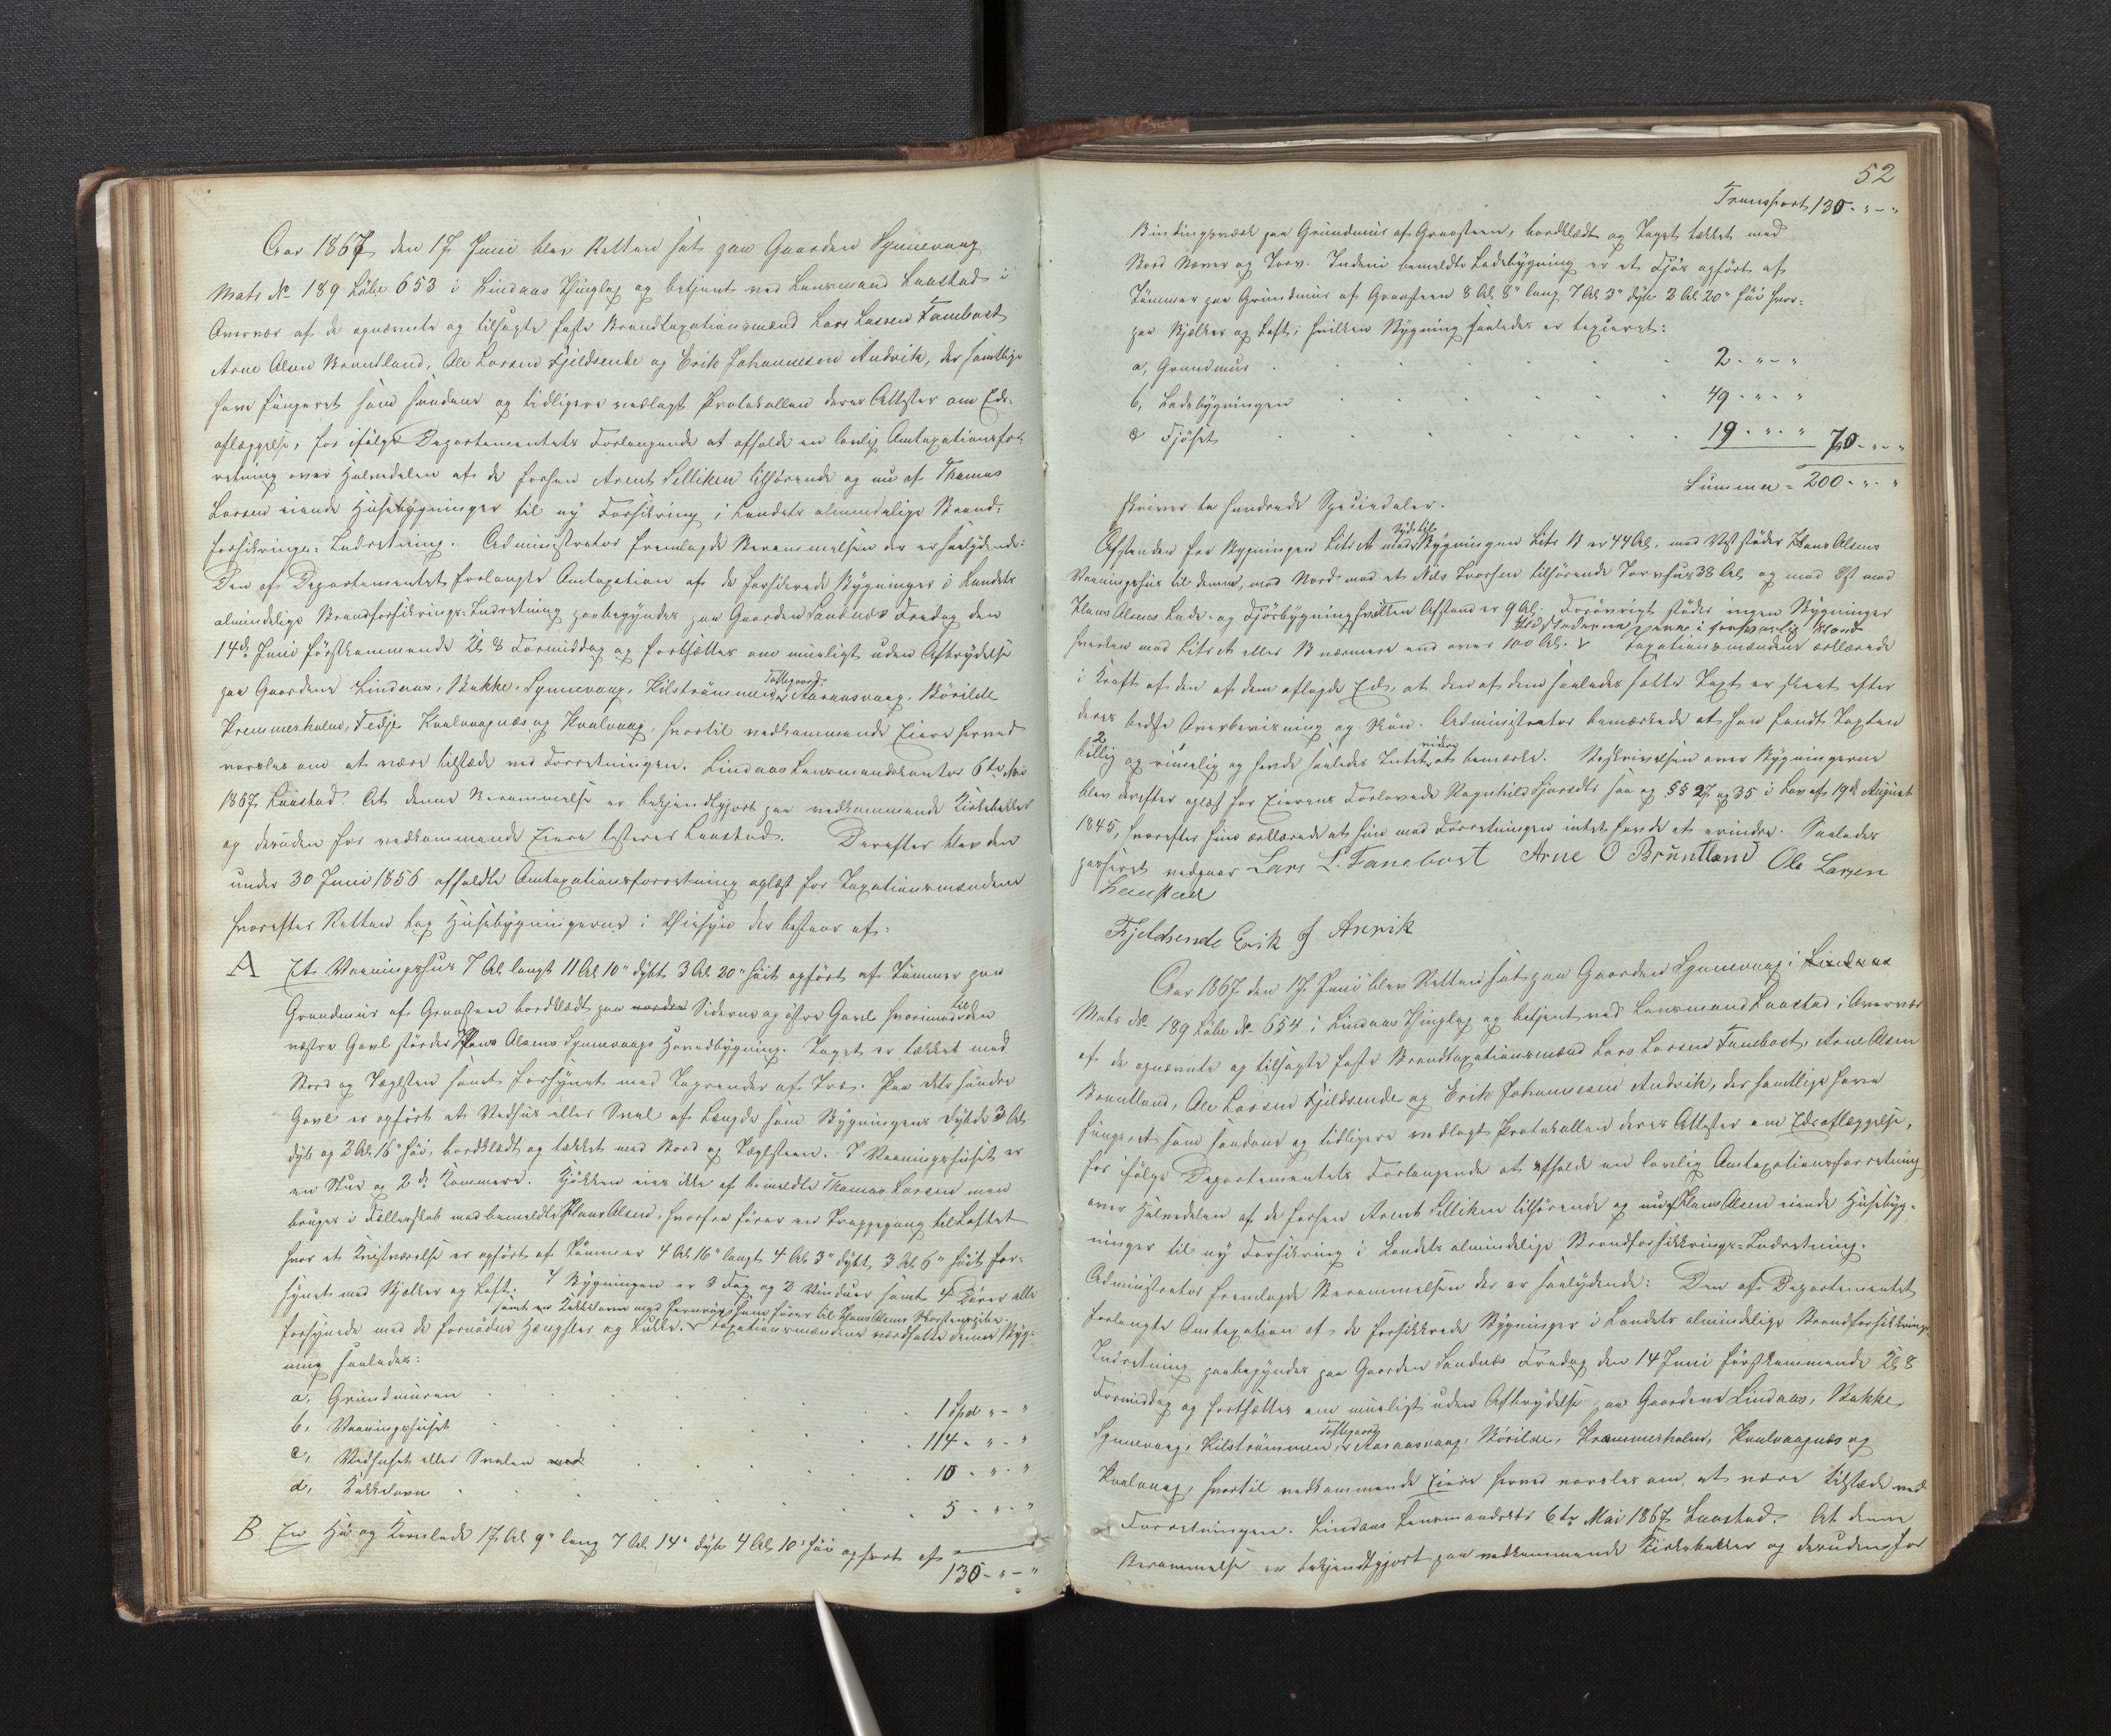 Aar 1867 den 17 Juni blev Retten sat paa Gaarden Synnevaag
Matr No 189 Løbe 653 i Lindaas Thinglag og betjent ved Lensmand Laastad i
Overvær af de opnævnte og tilsagte faste Brandtaxationsmænd Lars Larsen Fanebost
Arne Olsen Bruntland, Ole Larsen Fjeldsende og Erik Johannesen Andvik, der samtlige
have fungeret som saadane og tidligere vedlagt Protokollen deres Attester om Eds-
aflæggelse, for ifølge Departementets Forlangende at afholde en lovlig Omtaxationsfor-
retning over Halvdelen af de forhen Arent Selliken tilhørende og nu af Thomas
Larsen eiende Husebygninger til ny Forsikring i Landets almindelige Brand-
forsikrings-Indretning. Administrator fremlagde Berammelsen der er saalydende:
Den af Departementet forlangte Omtaxation af de forsikrede Bygninger i Landets
almindelige Brandforsikrings-Indretning paabegyndes paa Gaarden Sandnæs Fredag den
14de Juni førstkommende Kl 8 Formiddag og fortsættes om muligt uden Afbrydelse
Toftegaard
paa Gaardene Lindaas, Bakke, Synnevaag, Kilstrømmen, Aaraasvaag, Børilde
Kræmmerholm, Fedje Kaalvaagnæs og Kaalvaag, hvortil vedkommende Eiere herved
varsles om at være tilstæde ved Forretningen. Lindaas Lensmandskontor 6te Mai
1867 Laastad. At denne Berammelse er bekjendtgjort paa vedkommende Kirkebakker
og desuden for vedkommende Eiere testerer Laastad. Derefter blev den
under 30 Juni 1856 afholdte Omtaxationsforretning oplæst for Taxationsmændene
hvorefter Retten tog Husebygningerne i Øiesyn der bestaar af:
A Et Vaaningshus 7 Al langt 11 Al 10" dybt 3 Al 20" høit opført af Tømmer paa
Grundmur af Graasteen bordklædt paa norden Siderne og østre Gavl hvorimod til den
vestre Gavl støder Hans Olsens Synnevaags Hovedbygning. Taget er tækket med
Bord og Tagsteen samt forsynet med Tagrender af Træ. Paa dets søndre
Gavl er opført et Vedhus eller Sval af Længde som Bygningens Dybde 3 Al
dyb og 2 Al 16" høi, bordklædt og tækket med Bord og Tagsteen. I Vaaningshuset er
en Stue og 2 de Kammere. Kjøkken eies ikke af bemeldte Thomas Larsen men
bruges i Fællesskab med bemeldte Hans Olsen, hvorfra fører en Trappegang til Loftet
hvor et Kvistværelse er opført af Tømmer 4 Al 16" langt 4 Al 3" dybt 3 Al 6" høit for-
synet med Bjelker og Loft. I Bygningen er 3 Fag og 2 Vinduer samt 4 Dører alle
samt en Kakkelovn med Jernrør som fører til Hans Olsens Skorstenspibe.
forsynede med de fornødne Hængsler og Lukke. Taxationsmændene værdsatte denne Byg-
ning saaledes:
a, Grundmuren 1 Spd " - "
b, Vaaningshuset 114 - " - "
c, Vedhuset eller Svalen med 10 - " - "
d, Kakkelovn 5 - " - "
B En Hø og Kornlade 17 Al 9" lang 7 Al 14" dyb 4 Al 10" høi opført af
130 - " - "
52
Transport 130 - " - "
Bindingsværk paa Grundmur af Graasteen, bordklædt og Taget tækket med
Bord Næver og Torv. Indeni bemeldte Ladebygning er et Fjøs opført af
Tømmer paa Grundmur af Graasteen 8 Al 8" lang 7 Al 3" dyb 3 Al 20" høi hvor-
paa Bjelker og Loft; hvilken Bygning saaledes er taxeret:
a, Grundmur 2 - " - "
b, Ladebygningen 49 - " - "
c Fjøset 19 - " - " 70 - " - "
Summer = 200 - " - "
skriver to hundrede Speciedaler.
Syd til
Afstanden fra Bygningen Litr A mod Bygningen Litr B er 44 Al, mod Vest støder Hans Olsens
Vaaningshus til denne, mod Nord mod et Nils Ivarsen tilhørende Torvhus 38 Al og mod Øst mod
Hans Olsens Lade- og Fjøsbygning hvilken Afstand er 9 Al. Forøvrigt støder ingen Bygninger
Ildstederne være i forsvarlig Stand
hverken mod Litr A eller B nærmere end over 100 Al. Taxationsmændene erklærede
i Kraft af den af dem aflagde Ed, at den af dem saaledes satte Taxt er skeet efter
deres bedste Overbevisning og Skjøn. Administrator bemærkede at han fandt Taxten
videre
billig og rimelig og havde saaledes Intet at bemærke. Beskrivelsen over Bygningerne
blev derefter oplæst for Eierens Forlovede Ragnhild Sjursdtr saa og §§ 27 og 35 i Lov af 19de August
1845, hvorefter hun erklærede at hun mod Forretningen intet havde at erindre. Saaledes
passeret vedgaar Lars L. Fanebost Arne O Bruntland Ole Larsen
Laastad
Fjeldsende Erik J Anvik
Aar 1867 den 17 Juni blev Retten sat paa Gaarden Synnevaag i Lindaas
Matr No 189 Løbe No 654 i Lindaas Thinglag og betjent ved Lensmand Laastad i Overvær
af de opnævnte og tilsagte faste Brandtaxationsmænd Lars Larsen Fanebost, Arne Olsen
Bruntland, Ole Larsen Fjeldsende og Erik Johannesen Andvik, der samtlige have
fungeret som saadane og tidligere vedlagt Protokollen deres Attester om Edsaflæggelse,
for ifølge Departementets Forlangende at afholde en lovlig Omtaxationsforretning
over Halvedelen af de forhen Arent Selliken tilhørende og nu af Hans Olsen eiende Husebyg-
ninger til ny Forsikring i Landets almindelige Brandforsikkrings-Indretning.
Administrator fremlagde Berammelsen der er saalydende: Den af Departementet
forlangte Omtaxation af de forsikkrede Bygninger i Landets almindelige Brandforsikkrings-
Indretning paabegyndes paa Gaarden Sandnæs Fredag den 14 Juni førstkommende Kl 8
Formiddag og fortsættes om muligt uden Afbrydelse paa Gaardene Lindaas, Bakke,
Toftegaard
Synnevaag, Kilstrømmen, Aaraasvaag, Børilde, Kræmmerholm, Kaalvaagnæs og
Kaalvaag, hvortil vedkommende Eiere herved varsles om at være tilstæde ved
Forretningen. Lindaas Lensmandsktr 6te Mai 1867 Laastad. At denne
Berammelse er bekjendtgjort paa vedkommende Kirkebakker og desuden for